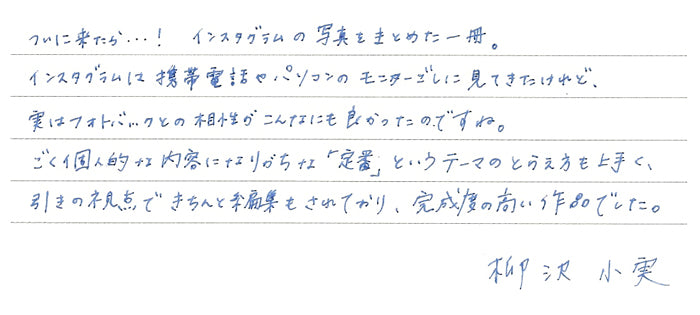 ついに来たか…！ インスタグラムの写真をまとめた一冊。
インスタグラムは携帯電話やパソコンのモニターごしに見てきたけれど、
実はフォトバックとの相性がこんなにも良かったのですね。
ごく個人的な内容になりがちな「定番」というテーマのとらえ方も上手く、
引きの視点できちんと編集もされており、完成度の高い作品でした。
柳沢 小実